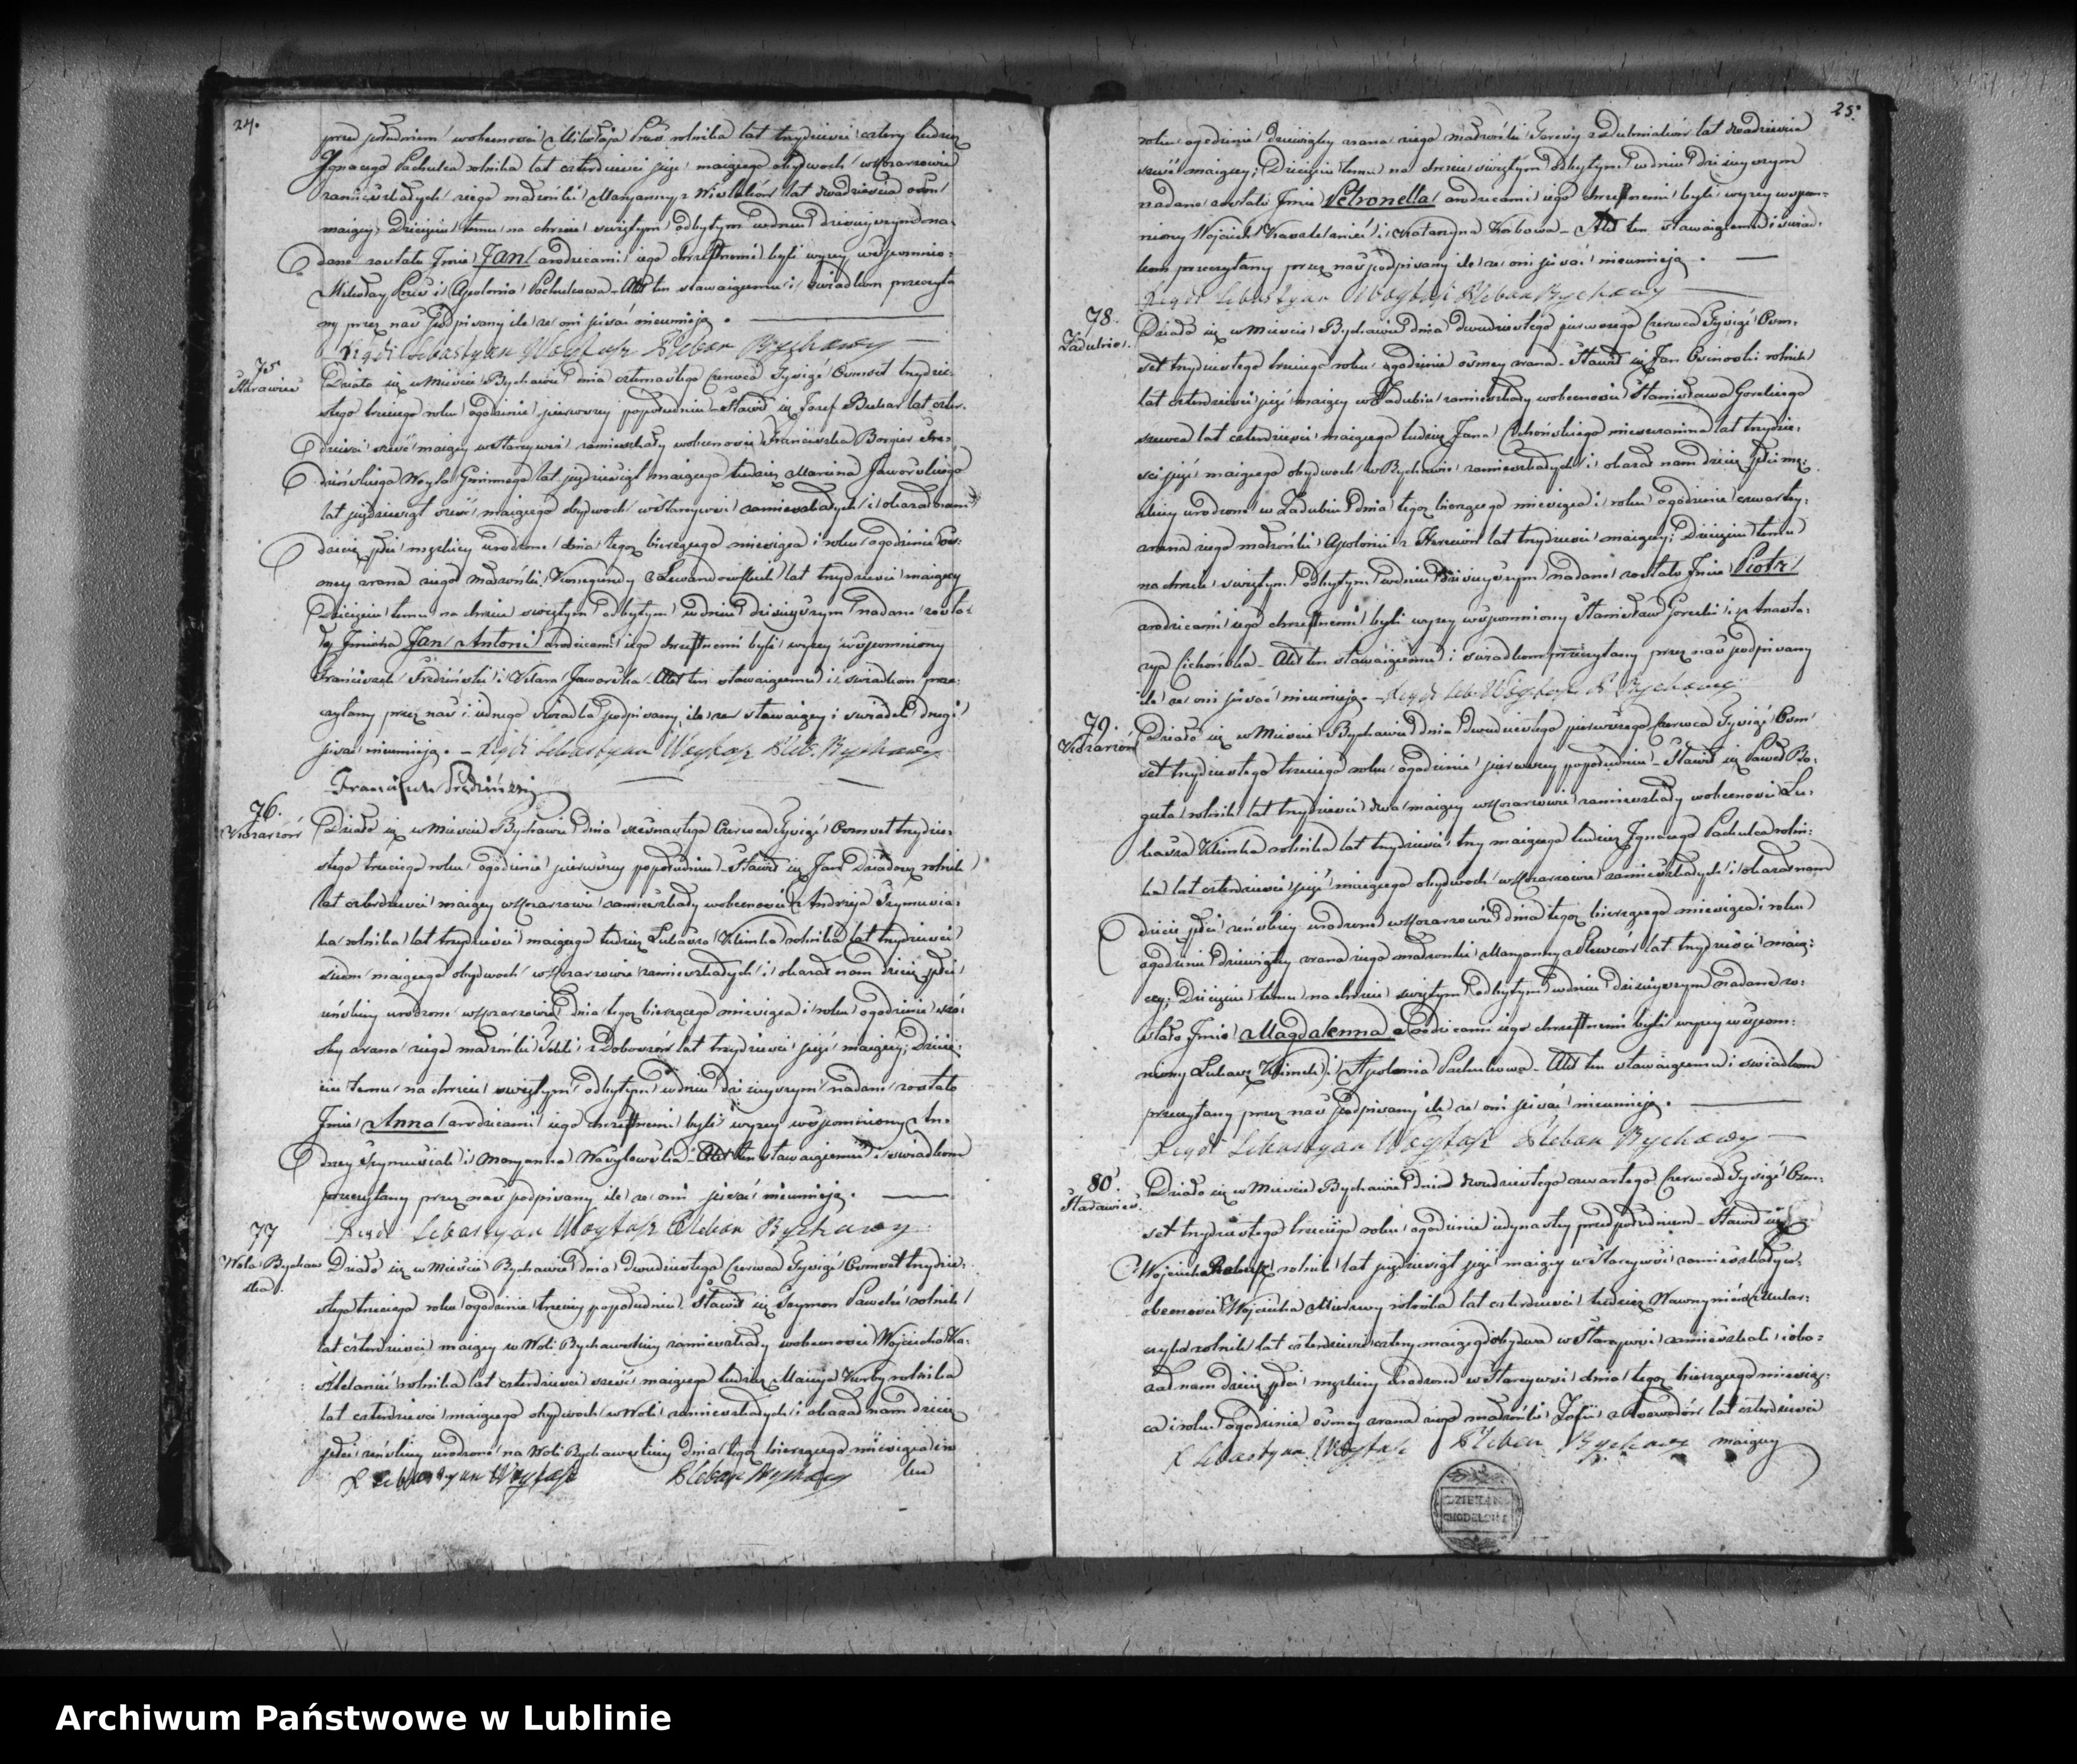 24.
przed południem w obecności Mikołaja rolnika lat trzydzieści cztery tudzież
Ignacego Pachulca rolnika lat czterdzieści pięć maiącego obydwoch w Kozarzowie
zamieszkałych z iego małżonki Maryanny z lat dwadzieścia ośm
maiącey, Dziecięciu temu na chrzcie świętym odbytym w dniu dzisieyszym nada:
dane zostało Jmie Jan a rodzicami iego chrzestnemi byli wyżey wspomnio:
Mikołay i Apolonia Pachulcowa - Akt ten stawaiącemu i świadkom przeczyta
ny przez nas podpisany ile że oni pisać nieumieją.
Xiądz Sebastyan Woytasz Pleban Bychawy
75
Starawieś
Działo się w Mieście Bychawie dnia czternastego Czerwca Tysiąc Ośmset trzydzie:
stego trzeciego roku o godzinie pierwszey popołudniu - Stawił się Jozef lat czter:
dzieści sześć maiący w Starywsi zamieszkały w obecności Franciszka
Woyta Gminnego lat pięćdziesiąt maiącego tudzież Marcina Jaworskiego
lat pięćdziesiąt sześć maiącego obydwoch w Stareywsi zamieszkałych i okazał nam
dziecię płci męzkiey urodzone dnia tegoż bieżącego miesiąca i roku o godzinie ós:
mey zrana z iego Małżonki Kunegundy z Lewandowskich lat trzydzieści maiącey
Dziecięciu temu na chrzcie świętym odbytym w dniu dzisieyszym nadane zosta:
ły Jmiona Jan Antoni a rodzicami iego chrzestnemi byli wyżey wspomniony
Franciszek Średziński i Klara Jaworska - Akt ten stawaiącemu i świadkom prze:
czytany przez nas i iednego świadka podpisany, ile że stawaiący i świadek drugi
pisać nieumieją. - Xiądz Sebastyan Woytasz Pleb. Bychawy
Franciszek Średziński
76.
Kozarzów
Działo się w Mieście Bychawie dnia szesnastego Czerwca Tysiąc Ośmset trzydzie:
stego trzeciego roku o godzinie pierwszey popołudniu - Stawił się Jan rolnik
lat czterdzieści maiący w Kozarzowie zamieszkały w obecności Andrzeja Szymusia:
ka rolnika lat trzydzieści maiącego tudzież Łukasza Klimka rolnika lat trzydzieści
siedm maiącego obydwoch w Kozarzowie zamieszkałych i okazał nam dziecię płci
żeńskiey urodzone w Kozarzowie dnia tegoż bieżącego miesiąca i roku o godzinie szó:
stey zrana z iego małżonki lat trzydzieści pięć maiącey; Dziecię:
ciu temu na chrzcie świętym odbytym w dniu dzisieyszym nadane zostało
Jmie Anna a rodzicami iego chrzestnemi byli wyżey wspomniony An:
drzey Szymusiak i Maryanna Wasylowska - Akt ten stawaiącemu i świadkom
przeczytany przez nas podpisany ile że oni pisać nieumieją.
Xiądz Sebastyan Woytasz Pleban Bychawy
77
Wola Bychaw
ska
Działo się w Mieście Bychawie dnia dwudziestego Czerwca Tysiąc Ośmset trzydzie:
stego trzeciego roku o godzinie trzeciey popołudniu - Stawił się Szymon Paweł rolnik
lat czterdzieści maiący w Woli Bychawskiey zamieszkały w obecności Wojciecha
rolnika lat czterdzieści sześć maiącego tudzież Macieja rolnika
lat czterdzieści maiącego obydwoch w Woli zamieszkałych i okazał nam dziecię
płci żeńskiey urodzone na Woli Bychawskiey dnia tegoż bieżącego miesiąca i ro
X Sebastyan Woytasz Pleban Bychawy ku
25.
roku o godzinie dziewiątey zrana z iego małżonki Teressy lat dwadzieścia
sześć maiącey; Dziecięciu temu na chrzcie świętym odbytym w dniu dzisieyszym
nadane zostało Jmie Petronella a rodzicami iego chrzestnemi byli wyżey wspom:
niony Wojciech i Katarzyna - Akt ten stawaiącemu i świad:
kom przeczytany przez nas podpisany ile że oni pisać nieumieją.
Xiądz Sebastyan Woytasz Pleban Bychawy
78.
Zadubie.
Działo się w Mieście Bychawie dnia dwudziestego pierwszego Czerwca Tysiąc Ośm:
set trzydziestego trzeciego roku o godzinie ósmey zrana - Stawił się Jan Osinoski rolnik
lat czterdzieści pięć maiący w Zadubiu zamieszkały w obecności Stanisława Goreckiego
szewca lat czterdzieści maiącego tudzież Jana Cichońskiego mieszczanina lat trzydzie:
ści pięć maiącego obydwoch w Bychawie zamieszkałych i okazał nam dziecię płci mę:
zkiey urodzone w Zadubiu dnia tegoż bieżącego miesiąca i roku o godzinie czwartey
zrana z iego małżonki Apolonii lat trzydzieści maiącey; Dziecięciu temu
na chrzcie świętym odbytym w dniu dzisieyszym nadane zostało Jmie Piotr
a rodzicami iego chrzestnemi byli wyżey wspomniony Stanisław Gorecki i Anasta:
zya Cichońska - Akt ten stawaiącemu i świadkom przeczytany przez nas podpisany
ile że oni pisać nieumieją. - Xiądz Seb. Woytasz P. Bychawy
79.
Kozarzów
Działo się w Mieście Bychawie dnia dwudziestego pierwszego Czerwca Tysiąc Ośm
set trzydziestego trzeciego roku o godzinie pierwszey popołudniu - Stawił się Paweł Bo:
guta rolnik lat trzydzieści dwa maiący w Kozarzowie zamieszkały w obecności Łu:
kasza Klimka rolnika lat trzydzieści trzy maiącego tudzież Ignacego Pachulca rolni:
ka lat czterdzieści pięć maiącego obydwoch w Kozarzowie zamieszkałych i okazał nam
dziecię płci żeńskiey urodzone w Kozarzowie dnia tegoż bieżącego miesiąca i roku
o godzinie dziewiątey zrana z iego małżonki Maryanny lat trzydzieści maią:
cey; Dziecięciu temu na chrzcie świętym odbytym w dniu dzisieyszym nadane zo:
stało Jmie Magdalenna a rodzicami iego chrzestnemi byli wyżey wspom:
niony Łukasz Klimek i Apolonia Pachulcowa - Akt ten stawaiącemu i świadkom
przeczytany przez nas podpisany ile że oni pisać nieumieją.
Xiądz Sebastyan Woytasz Pleban Bychawy
80.
Starawieś.
Działo się w Mieście Bychawie dnia dwudziestego czwartego Czerwca Tysiąc Ośm:
set trzydziestego trzeciego roku o godzinie iedynastey przedpołudniem - Stawił się
Wojciech rolnik lat pięćdziesiąt pięć maiący w Starywsi zamieszkały w
obecności Wojciecha rolnika lat czterdzieści tudzież Wawrzyńca
rolnik lat czterdzieści cztery maiącego obydwa w Starywsi zamieszkali i oka:
zał nam dziecię płci męzkiey urodzone w Starywsi dnia tegoż bieżącego miesią:
ca i roku o godzinie ósmey zrana z iego małżonki Zofii lat czterdzieści
X Sebastyan Woytasz Pleban Bychawy maiącey
DZIEKAN
CHODELSKI
Archiwum Państwowe w Lublinie